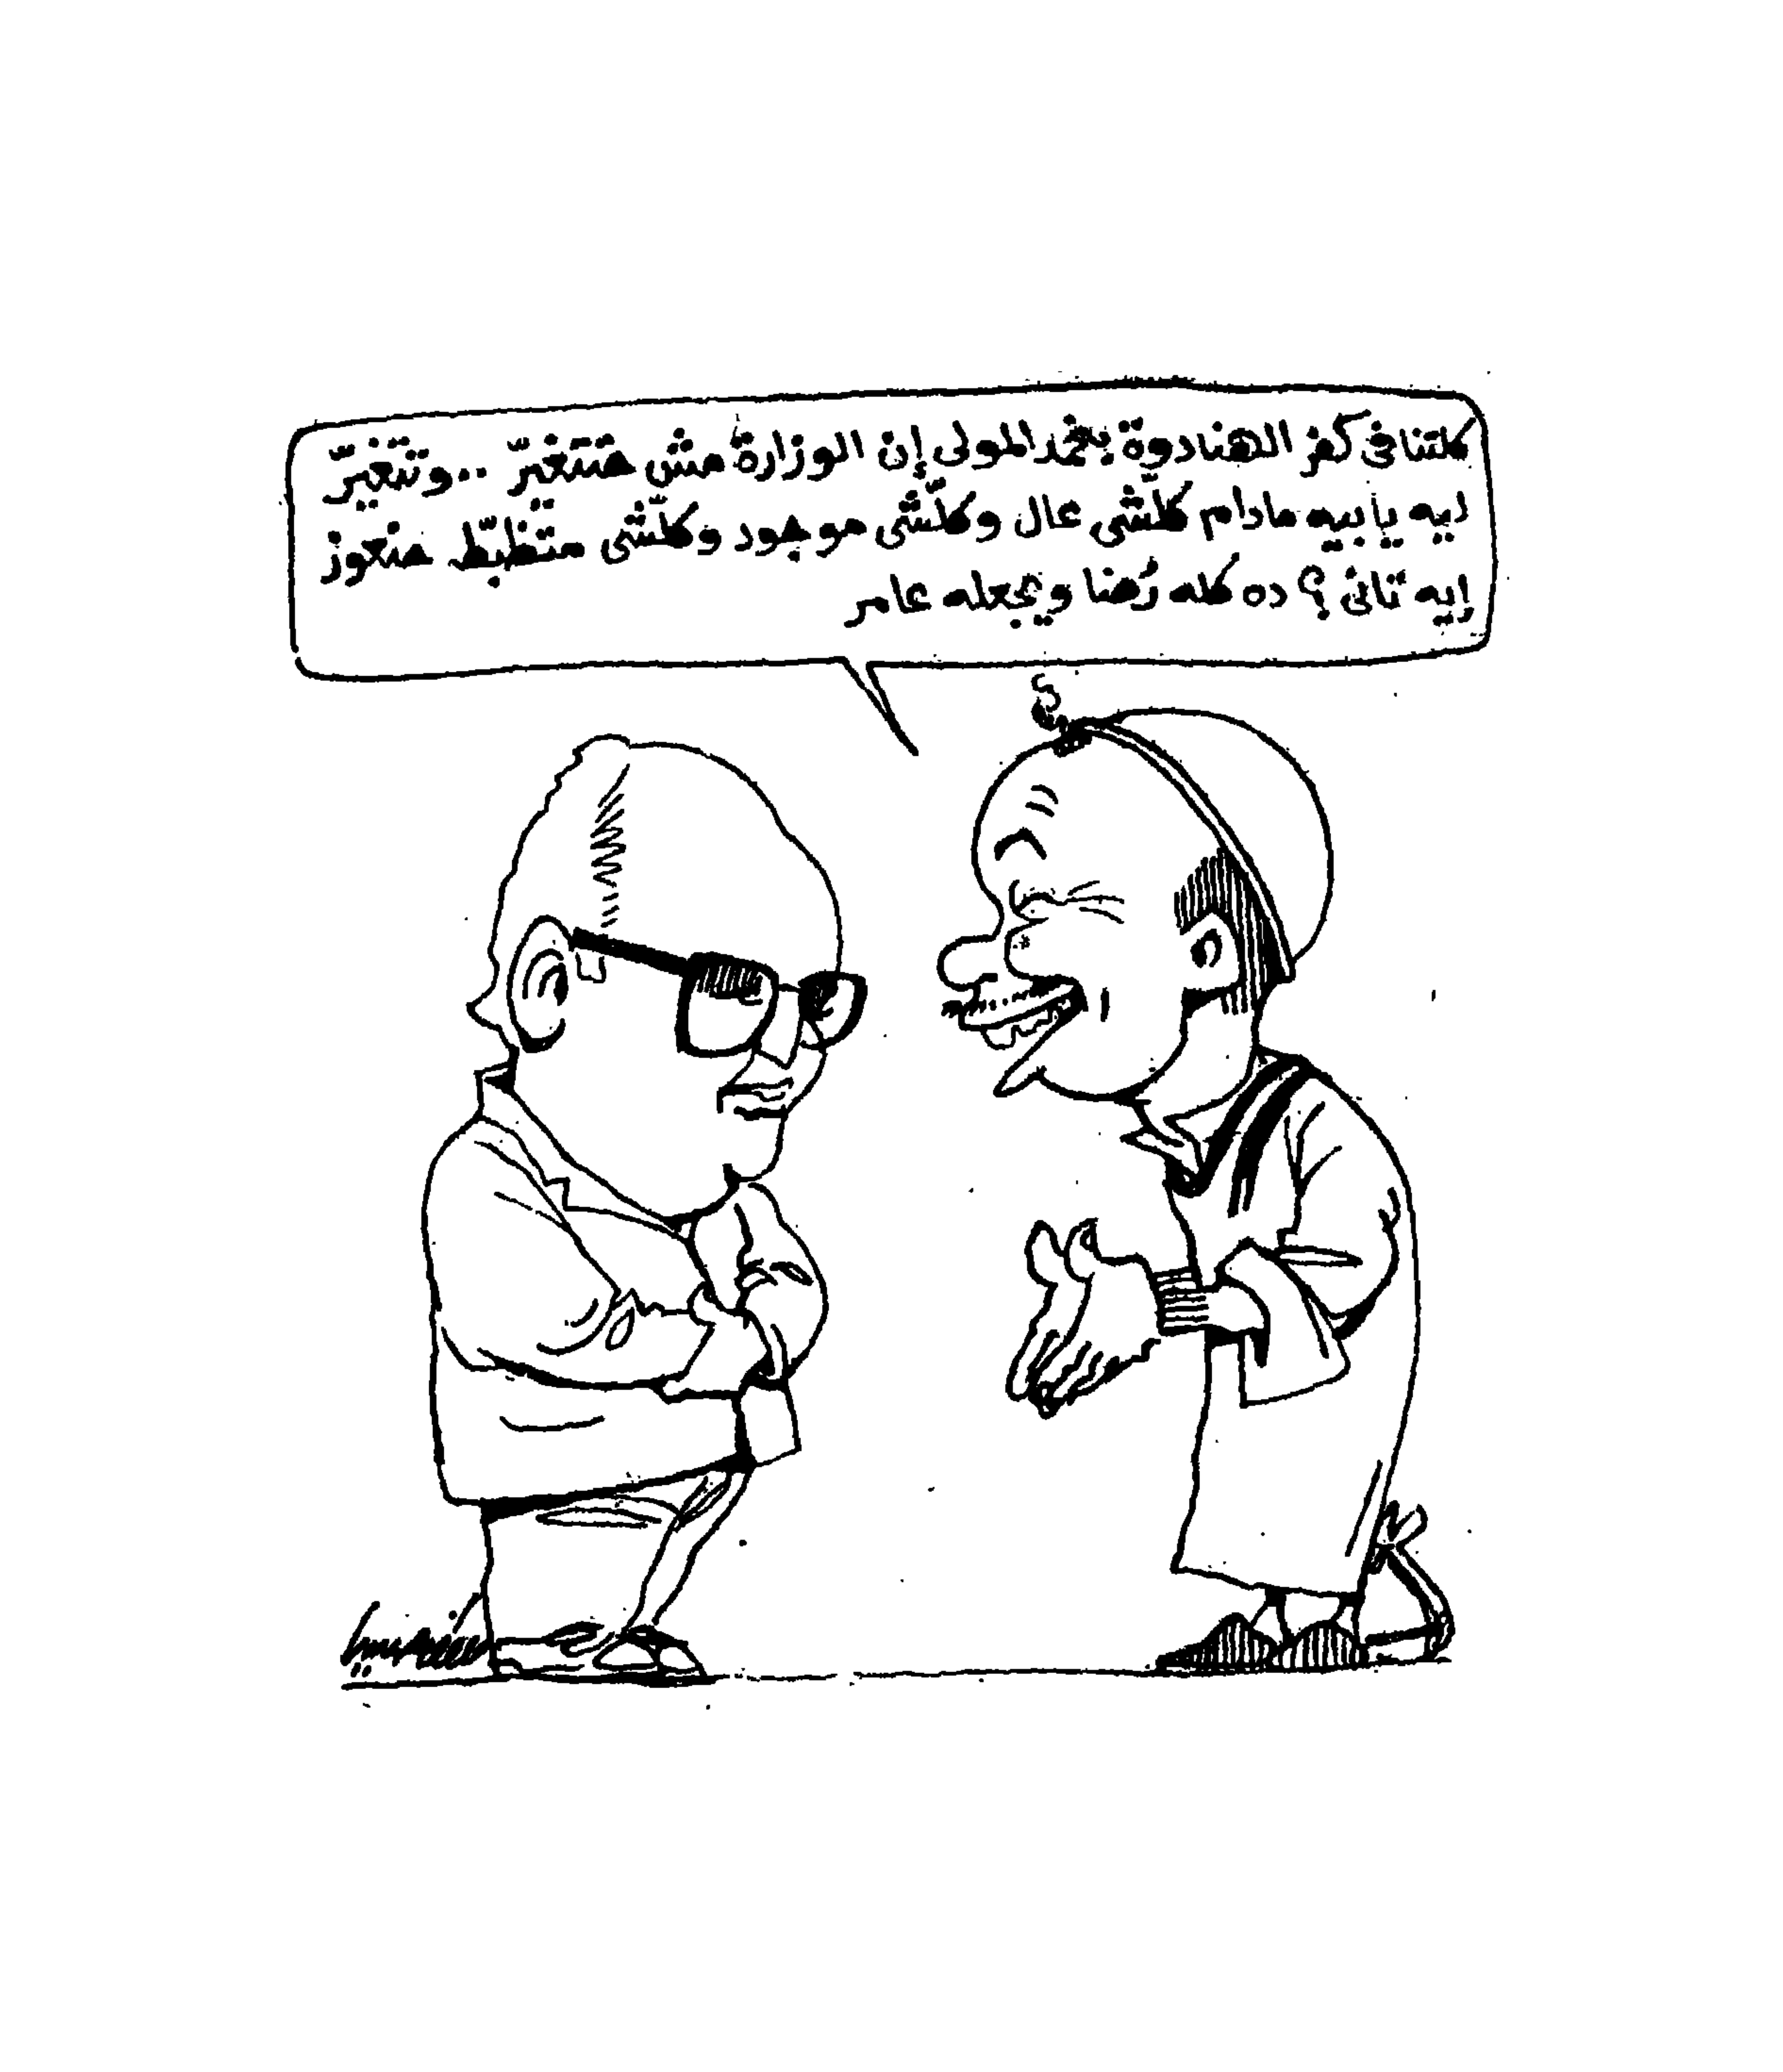 كلتنا فى كفر الهنادوة بنحمد المولى إن الوزارة مش حتتغيّر .. وتتغيّر
ليه يا بيه مادام كلّشى عال وكلّشى موجود وكلّشى متظبّط حنعوز
إيه تانى ؟ ده كله رُضا ويجعله عامر